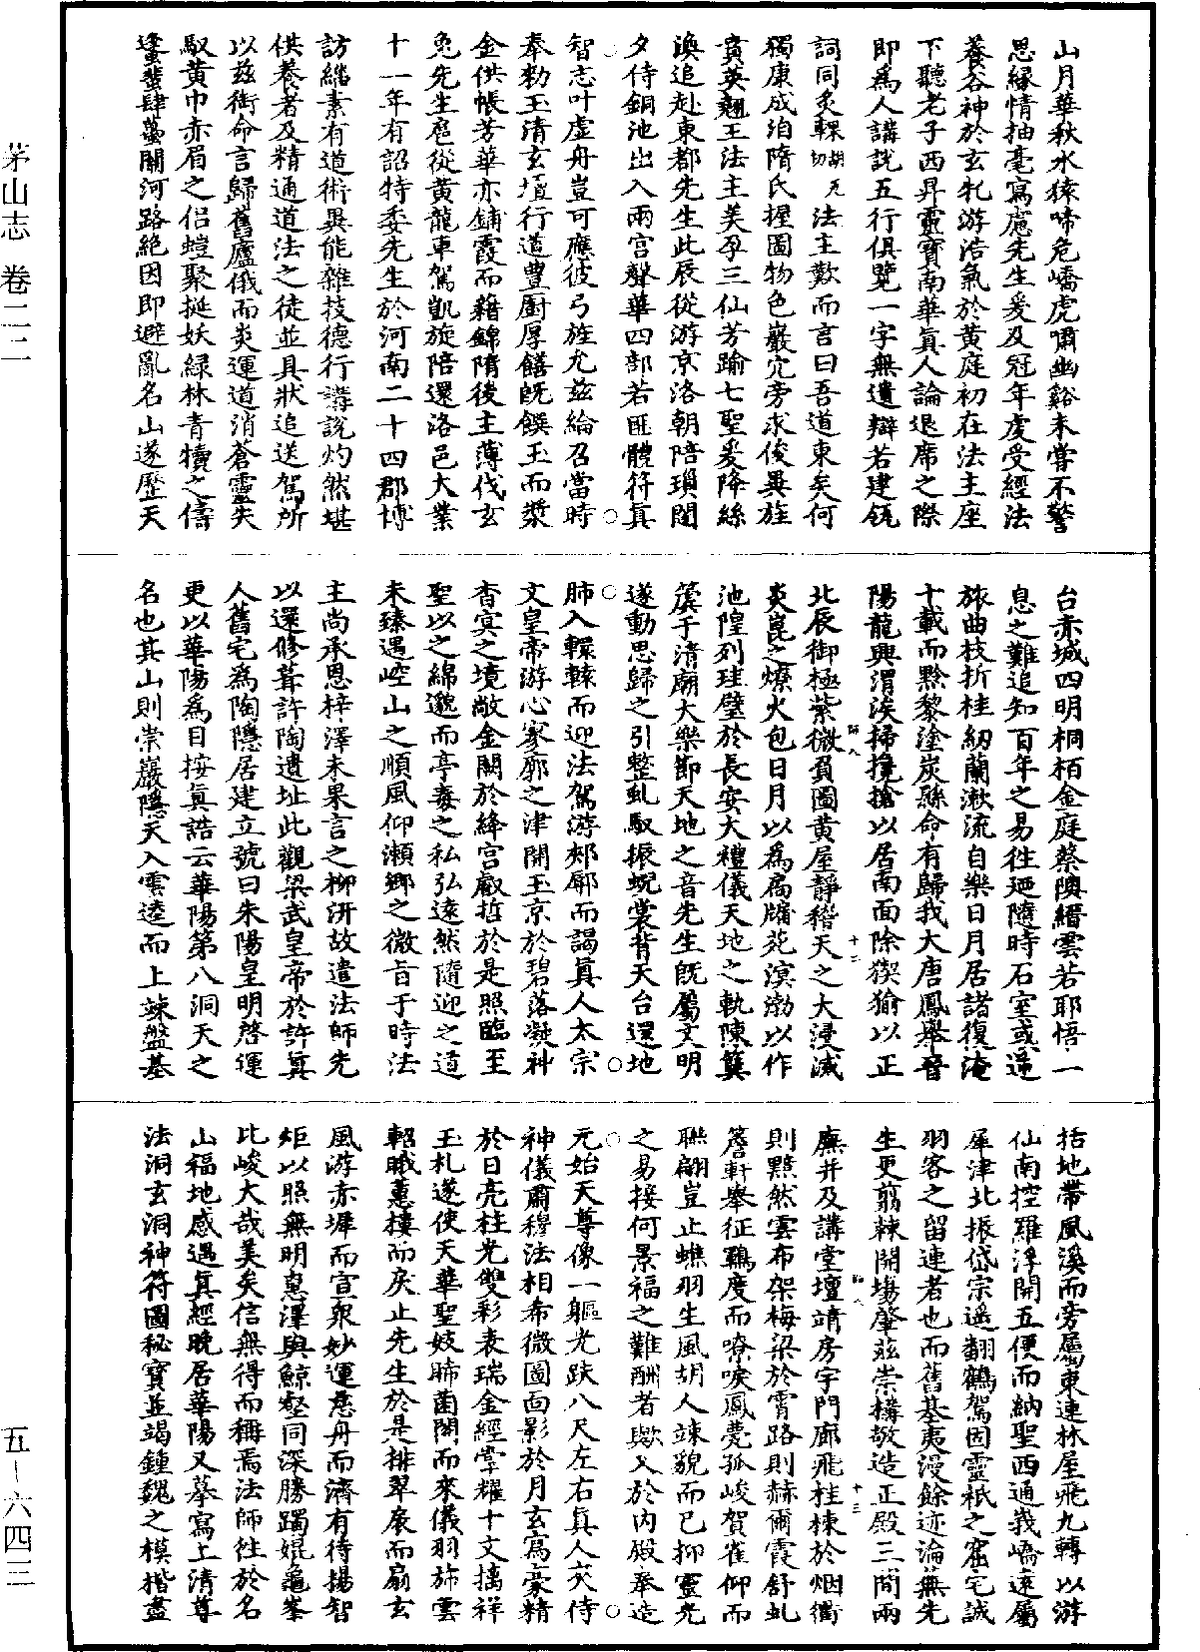 茅山志　卷二二
山月華秋水猿啼危嶠虎嘯幽谿未嘗不警
思緣情抽毫寫慮先生爰及冠年虔受經法
養谷神於玄牝游浩氣於黃庭初在法主座
下聽老子西昇靈寶南華真人論退席之際
即為人講說五行俱覽一字無遺辯若建瓴
詞同炙輠胡瓦切法主歎而言曰吾道東矣何
獨康成洎隋氏握圖物色巖穴旁求俊異旌
賁英翹王法主美孕三仙芳踰七聖爰降絲
渙追赴東都先生此辰從游京洛朝陪瑣闥
夕侍銅池出入兩宮聲華四部若匪體符真
智志叶虛舟豈可應彼弓旌允茲綸召當時
奉勅玉清玄壇行道豊廚厚饍既饌玉而漿
金供帳芳華亦鋪霞而藉錦隋後主薄伐玄
兔先生扈從黃龍車駕凱旋陪還洛邑大業
十一年有詔特委先生於河南二十四郡博
訪緇素有道術異能雜技德行講說灼然堪
供養者及精通道法之徒並具狀追送駕所
以茲銜命言歸舊廬俄而炎運道消蒼靈失
馭黃巾赤眉之侶螘聚挻妖綠林青犢之儔
蜂蠆肆蠚關河路絕因即避亂名山遂歷天
台赤城四明桐栢金庭蔡隩縉雲若耶悟一
息之難追知百年之易徃廼隨時石室或遥
旅曲枝折桂紉蘭漱流自樂日月居諸復淹
十載而黔黎塗炭緜命有歸我大唐鳳舉晉
陽龍興渭涘掃攙搶以居南面除猰貐以正
北辰御極紫微負圖黃屋靜稽天之大浸滅
炎崑之燎火包日月以為扃牖苑溟渤以作
池隍列珪璧於長安大禮儀天地之軌陳簨
簴于清廟大樂節天地之音先生既屬文明
遂動思歸之引整虬馭振蜺裳背天台還地
肺入轘轅而迎法駕游郟鄏而謁真人太宗
文皇帝游心寥廓之津開玉京於碧落凝神
杳冥之境敞金闕於絳宮叡哲於是照臨至
聖以之綿邈而亭毒之私弘遠然隨迎之道
未臻遇崆山之順風仰瀨鄉之微旨于時法
主尚承恩梓澤未果言之柳汧故遣法師先
以還修葺許陶遺址此觀梁武皇帝於許真
人舊宅為陶隱居建立號曰朱陽皇明啓運
更以華陽為目按真誥云華陽第八洞天之
名也其山則崇巖隱天入雲逵而上竦盤基
括地帶風溪而旁屬東連林屋飛九轉以游
仙南控羅浮開五便而納聖西通峩嶠遠屬
犀津北振岱宗遥翻鶴駕固靈祇之窟宅誠
羽客之留連者也而舊基夷漫餘迹淪蕪先
生更剪棘開場肇茲崇構敬造正殿三間兩
廡并及講堂壇靖房宇門廊飛桂棟於烟衢
則黕然雲布架梅梁於霄路則赫爾霞舒虬
簷軒舉征鷄度而嘹唳鳳甍孤峻賀雀仰而
聯翩豈止蟭羽生風胡人竦貌而已抑靈光
之易接何景福之難酬者歟又於內殿奉造
元始天尊像一軀光趺八尺左右真人夾侍
神儀肅穆法相希微圖面影於月玄寫豪精
於日亮柱光雙彩表瑞金經掌耀十文摛祥
玉札遂使天華聖妓肺菌閣而來儀羽旆雲
軺睋蕙樓而戾止先生於是排翠扆而扇玄
風游赤墀而宣泉妙運慈舟而濟有待揚智
炬以照無明惠澤與鯨壑同深勝躅焜龜峯
比峻大哉美矣信無得而稱焉法師性於名
山福地感遇真經晚居華陽又摹寫上清尊
法洞玄洞神符圖秘寶並竭鍾魏之模楷盡
五－六四三